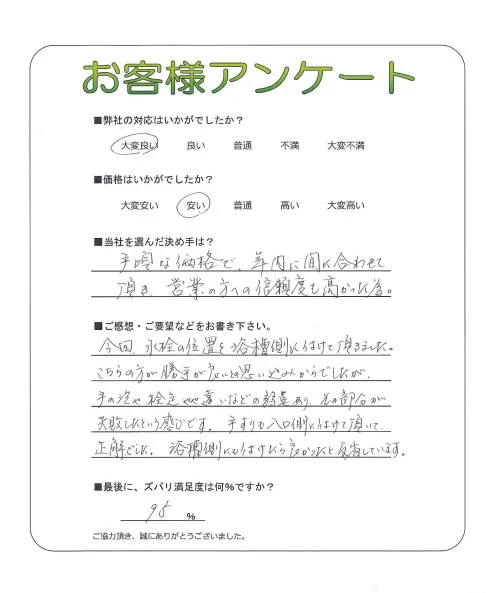 お客様アンケート
■弊社の対応はいかがでしたか？
大変良い 良い 普通 不満 大変不満
■価格はいかがでしたか？
大変安い 安い 普通 高い 大変高い
■当社を選んだ決め手は？
手頃な価格で、年内に間に合わせて
頂き、営業の方への信頼度も高かった為。
■ご感想・ご要望などをお書き下さい。
今回、水栓の位置を浴槽側に付けて頂きました。
こちらの方が勝手が良いとの思い込みからでしたが、
手の泡や栓
失敗したという感じです。手すりも入口側に付けて頂いて、
正解でした。浴槽側にも付けたら良かったと反省しています。
■最後に、ズバリ満足度は何%ですか？
95 %
ご協力頂き、誠にありがとうございました。